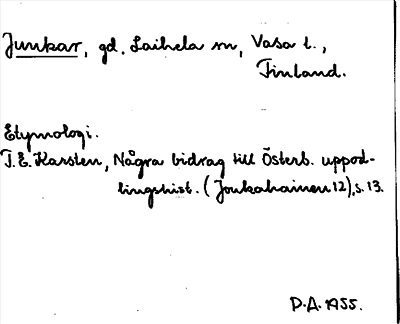 Junkar, gd. Laihela sn, Vasa l.,
Finland.
Etymologi.
T.E. Karsten, Några bidrag till Österb. uppod-
lingshist. (Joukahainen 12), s. 13.
D.A. 1955.